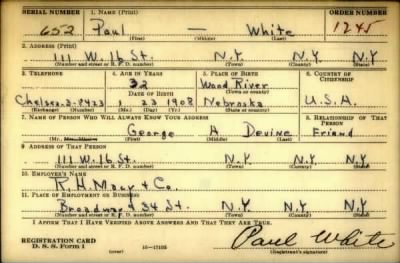 SERIAL NUMBER 1. NAME (Print) ORDER NUMBER
652 Paul — White 1245
(First) (Middle) (Last)
2. ADDRESS (Print)
111 W. 16 St. N.Y. N.Y. N.Y.
(Number and street or R. F. D. number) (Town) (County) (State)
3. TELEPHONE 4. AGE IN YEARS 5. PLACE OF BIRTH 6. COUNTRY OF CITIZENSHIP
32 Wood River
DATE OF BIRTH (Town or county)
Chelsea 3-8423 1 23 1908 Nebraska U.S.A.
(Exchange) (Number) (Mo.) (Day) (Yr.) (State or country)
7. NAME OF PERSON WHO WILL ALWAYS KNOW YOUR ADDRESS 8. RELATIONSHIP OF THAT PERSON
George A Devine Friend
(First) (Middle) (Last)
9. ADDRESS OF THAT PERSON
111 W. 16 St. N.Y. N.Y. N.Y.
(Number and street or R. F. D. number) (Town) (County) (State)
10. EMPLOYER'S NAME
R. H. Macy & Co.
11. PLACE OF EMPLOYMENT OR BUSINESS
Broadway & 34 St. N.Y. N.Y. N.Y.
(Number and street or R. F. D. number) (Town) (County) (State)
I AFFIRM THAT I HAVE VERIFIED ABOVE ANSWERS AND THAT THEY ARE TRUE.
REGISTRATION CARD
D. S. S. Form 1 (over) 16—17105 Paul White
(Registrant's signature)